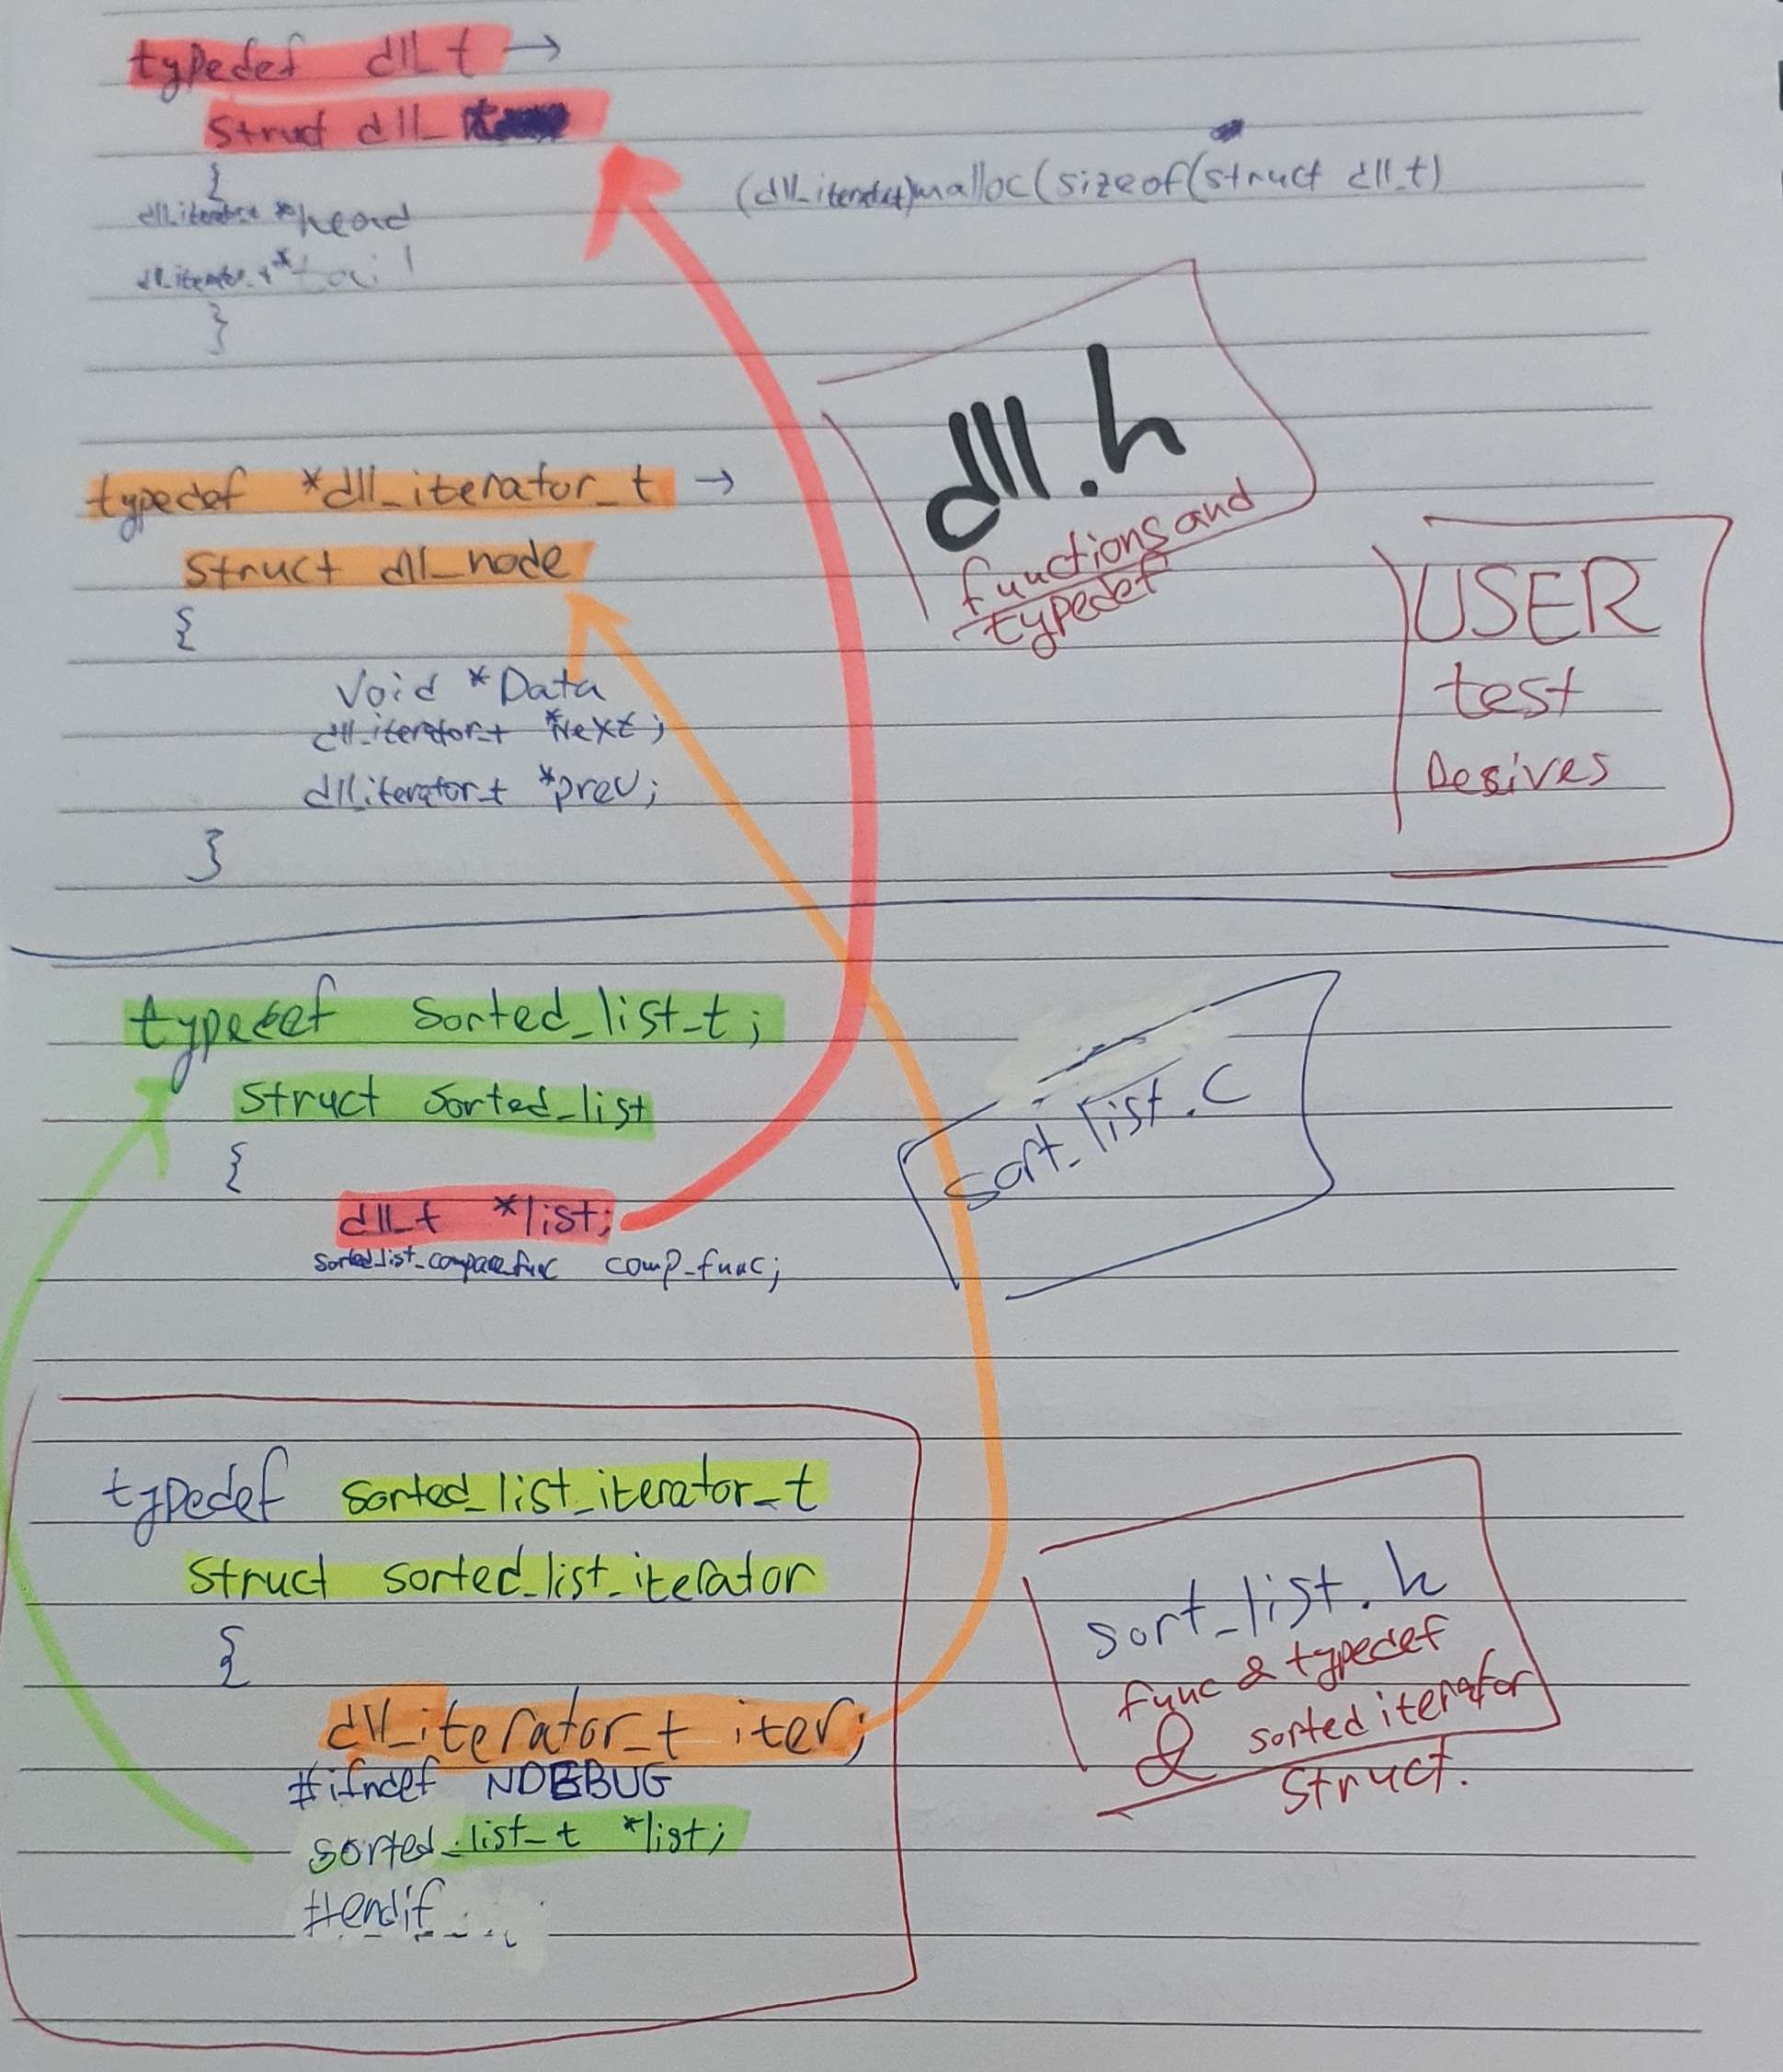 typedef dll_t →
struct dll_
{
dll_iterator_t *head
dll_iterator_t *tail
}
(dll_iterator_t)malloc(sizeof(struct dll_t)
dll.h
functions and
typedef
typedef *dll_iterator_t →
struct dll_node
{
void *Data
dll_iterator_t *Next;
dll_iterator_t *prev;
}
USER
test
Desives
typedef Sorted_list_t;
Struct Sorted_list
{
dll_t *list;
sorted_list_compare_func comp_func;
sort_list.c
typedef sorted_list_iterator_t
Struct sorted_list_iterator
{
dll_iterator_t iter;
#ifndef NDEBUG
sorted_list_t *list;
#endif
sort_list.h
func & typedef
& sorted iterator
struct.